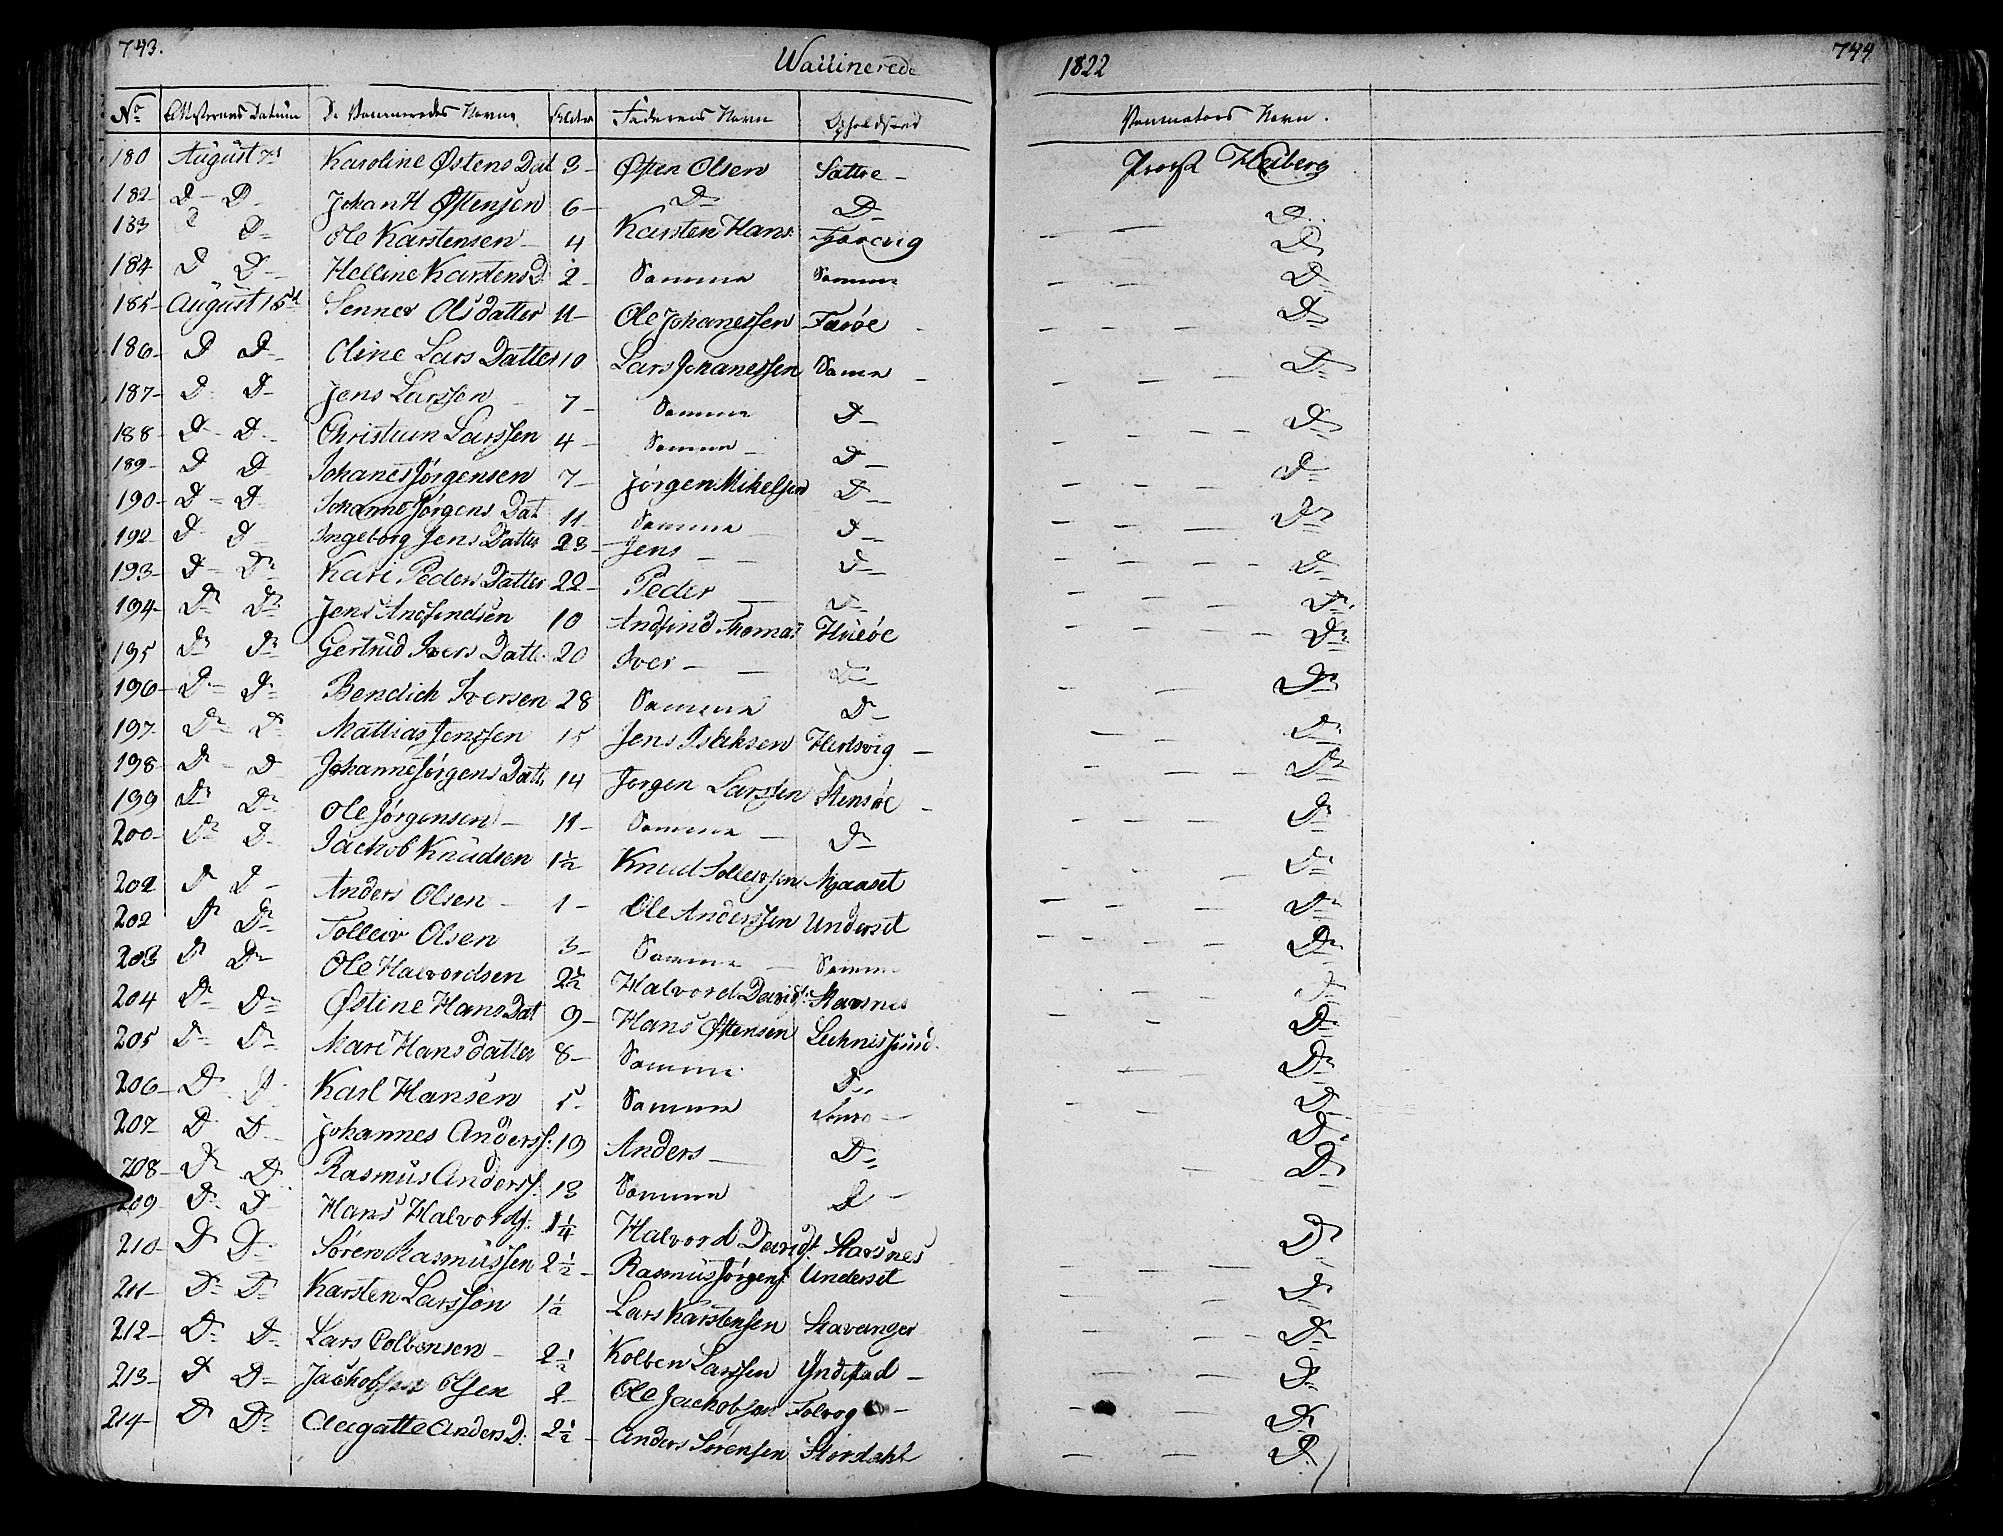 743.
Wacinerede
1822
744
No Datum De Navne Alder Faderens Navn Opholdsted
Navn.
180 August 7d Karoline Østens Dat 3 – Østen Olsen Sattre – Provst Heiberg
182 D – D – Johan H Østensen 6 – D – D – D
183 D D – Ole Karstensen – 4 Karsten Hans D
184 D D – Helline Karstens D. 2 – Samme Samme D
185 August 15d Senner Ols datter 11 – Ole Johanessen Færøe D
186 – D D – Oline Lars Datter 10 Lars Johanessen Same D
187 – D D – Jens Larssen 7 – Samme D – D
188 – D – D – Christian Larssen 4 – Samme D – D
189 – D D Johanes Jørgensen 7 – Jørgen Mikelsen D – D
190 – D – D Johanne Jørgens Dat 11 Samme D – D
192 D D – Ingeborg Jens Datter 23 – Jens – D – D
193 – D – D Kari Peders Datter 22 – Peder – D – D
194 – D D Jens Andfindsen 10 Andfind Thomas Hueøe D
195 D D Gertrud Ivers Datt. 20 Iver – D – D
196 – D – D Bendich Iversen 28 Samme D – D
197 – D D Mattias Jenssen 15 Jens Isaksen Hertsvig – D
198 – D – D Johanne Jørgens Datt 14 Jørgen Larssen Stensøe D
199 D D Ole Jørgensen – 11 – Samme – D D
200 – D D – Jackob Knudsen 1½ Knud D
202 D D – Anders Olsen – 1 – Ole Anderssen Underset D
202 D D Tolleiv Olsen 3 – Samme Samme D
203 D D Ole Halvordsen 2½ Halvord David Stavsnes D
204 D D Østine Hans Dat 9 – Hans Østensen D
205 D D Mari Hans datter 8 – Samme D D
206 – D D Karl Hansen 5 – Samme D
207 – D D Johannes Anderss. 19 Anders – D D
208 – D D Rasmus Anderss. 13 Samme D – D
209 – D D – Hans Halvords. 1¼ Halvord Davids. Stavsnes D
210 – D D Søren Rasmussen 2½ – Rasmus Jørgens. Underset D
211 – D D Karsten Larssøn 1½ Lars Karstensen Stavanger D
212 – D D – Lars Colbensen – 2½ Kolben Larssen Yndstad – D
213 – D D – Olsen 2 – Ole Jackobsen D
214 – D D Anders D. 2½ – Anders Sørensen Stordahl D